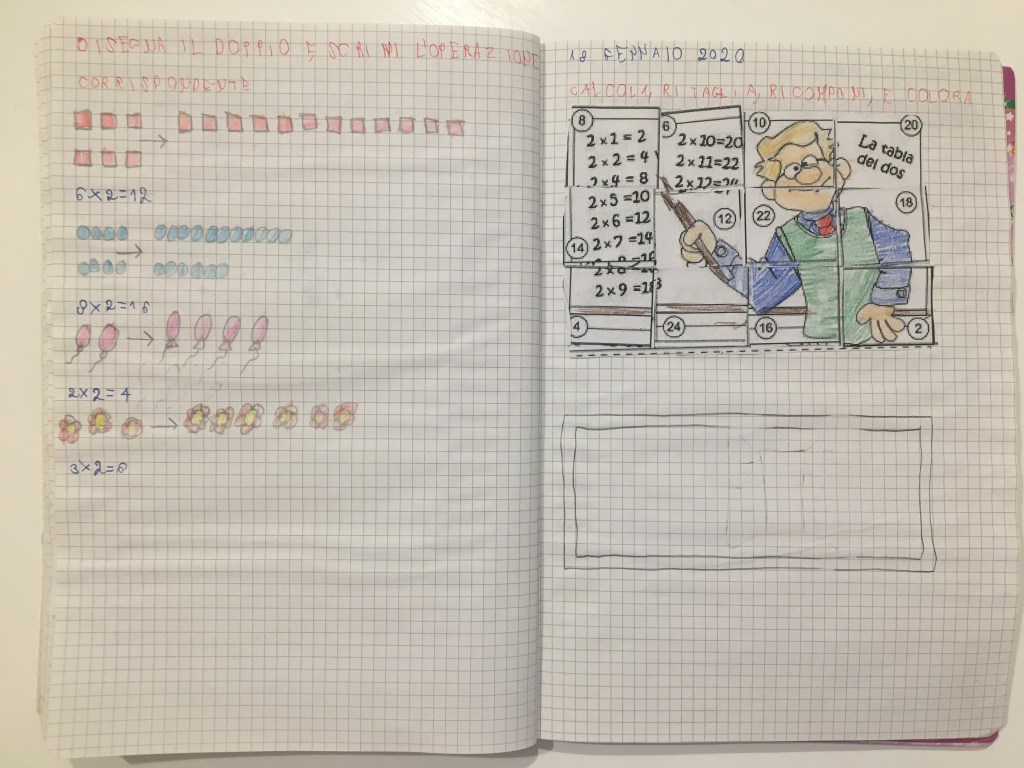 DISEGNA IL DOPPIO E SCRIVI L'OPERAZIONE
CORRISPONDENTE
6×2=12
8×2=16
2×2=4
3×2=6
18 GENNAIO 2020
CALCOLA, RITAGLIA, RICOMPONI, E COLORA
8
2×1=2
2×2=4
2×4=8
6
2×10=20
2×11=22
2×12=24
10
20
La tabla
del dos
2×5=10
2×6=12
14
2×7=14
12
22
18
2×9=18
4
24
16
2